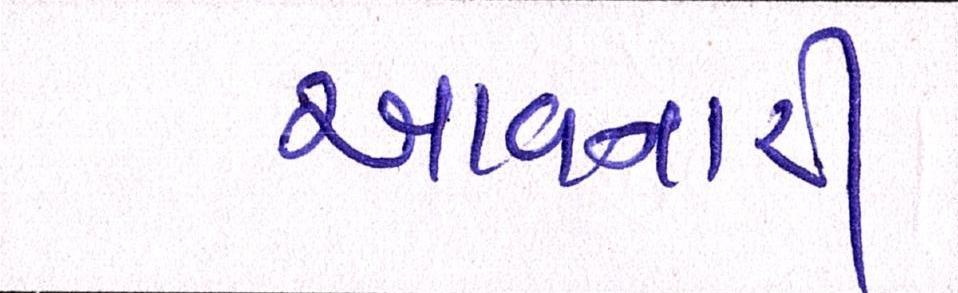 આવનારી